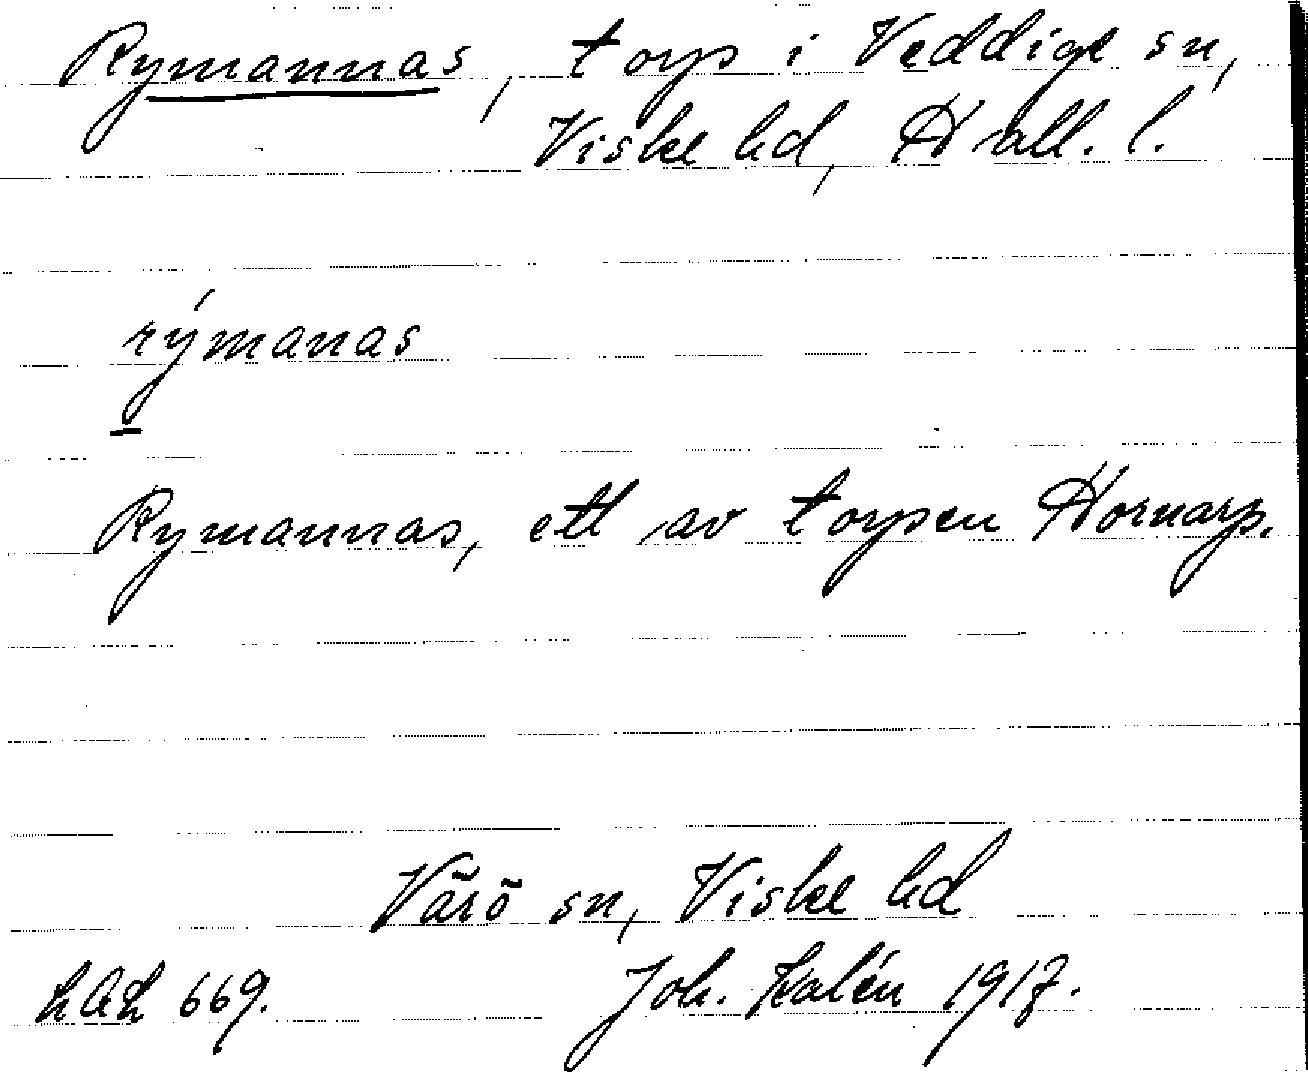 Rymannas, torp i Veddige sn,
Viske hd, Hall. l.
rýmanas
Rymannas, ett av torpen Hornarp.
Värö sn, Viske hd
669. Joh. Kalén 1917.